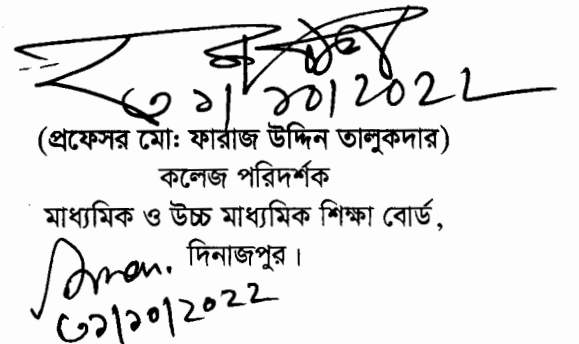 ৩১/১০/2022
(প্রফেসর মো: ফারাজ উদ্দিন তালুকদার)
কলেজ পরিদর্শক
মাধ্যমিক ও উচ্চ মাধ্যমিক শিক্ষা বোর্ড,
দিনাজপুর।
৩১/১০/2022